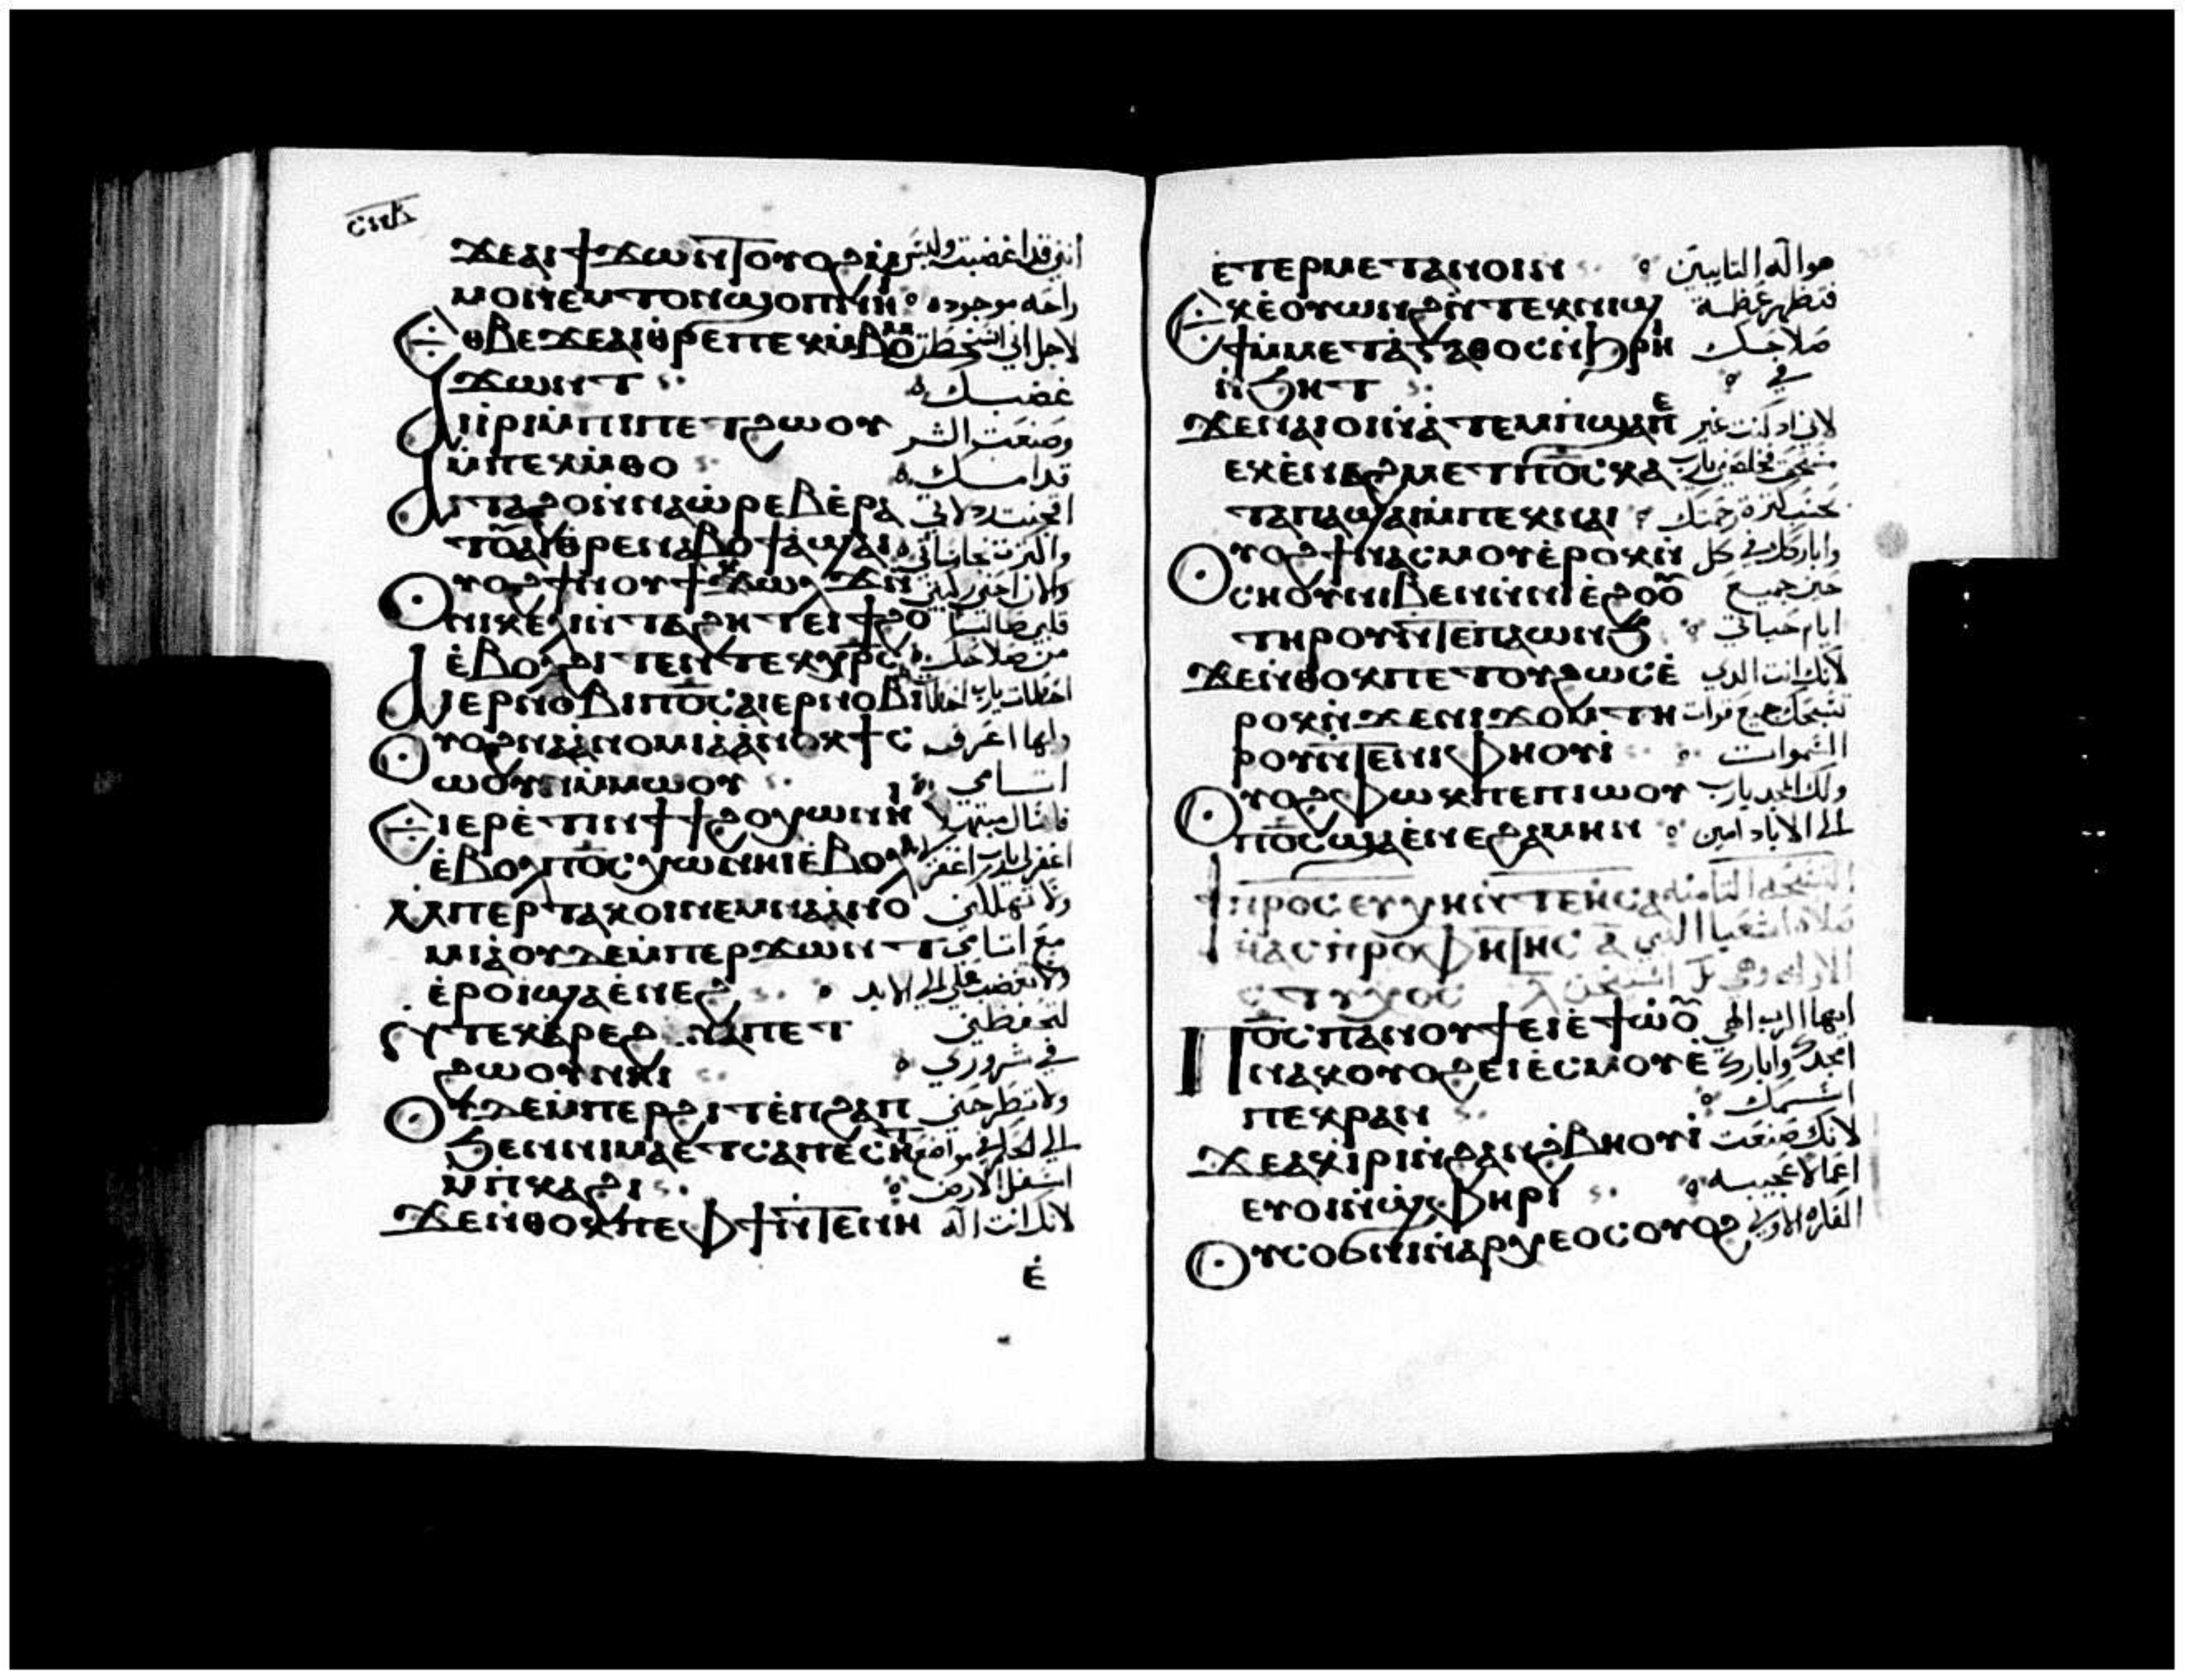 ϫⲉⲁⲓϯϫⲱⲛⲧ ⲟⲩⲟϩ انني قد اغضبت وليس
ⲙⲟⲛ ⲉⲙⲧⲟⲛ ϣⲟⲡ ⲛⲏⲓ راحه موجوده
Ⲉⲑⲃⲉϫⲉ ⲁⲓⲑⲣⲉ ⲡⲉⲕⲙ̇ⲃⲟⲛ لاجل اني اسخطت
ϫⲱⲛⲧ غضبك
Ⲁⲓⲓⲣⲓ ⲙ̇ⲡⲓⲡⲉⲧϩⲱⲟⲩ وصنعت الشر
ⲙ̇ⲡⲉⲕⲙ̇ⲑⲟ قدامك
Ⲁⲓⲧⲁϩⲟ ⲛ̇ⲛⲁⲱ̇ⲣⲉⲃ ⲉ̇ⲣⲁ
ⲧⲟⲩ ⲁⲓⲑⲣⲉ ⲛⲁⲃⲟϯ ⲁ̇ϣⲁⲓ واكثرت نجاساتي
Ⲟⲩⲟϩ ϯⲛⲟⲩ ϯⲕⲱⲗϫ ⲛ̇ والان احني ركبتي
ⲛⲓⲕⲉⲗⲓ ⲛ̇ⲧⲁϩⲏⲧ ⲉⲓϯϩⲟ قلبي طالبا
ⲉ̇ⲃⲟⲗϩⲓⲧⲉⲛ ⲧⲉⲕⲭⲣⲥ من صلاحك
Ⲁⲓⲉⲣⲛⲟⲃⲓ ⲡ⳪ ⲁⲓⲉⲣⲛⲟⲃⲓ اخطات يارب اخطات
Ⲟⲩⲟϩ ⲛⲁⲁ̇ⲛⲟⲙⲓⲁ̇ ⲁ̇ⲛⲟⲕ ϯⲥ وانا اعرف
ⲱⲟⲩⲛ ⲙ̇ⲙⲱⲟⲩ اثامي
Ⲉⲓⲉⲣⲉ̇ⲧⲓⲛ ϯϯϩⲟ ⲭⲱ ⲛⲏⲓ فاسال مبتهلا
ⲉ̇ⲃⲟⲗ ⲡ⳪ ⲭⲱ ⲛⲏⲓ ⲉ̇ⲃⲟⲗ اغفر لي يارب اغفر لي
ⲙ̇ⲡⲉⲣⲧⲁⲕⲟⲓ ⲛⲉⲙ ⲛⲁⲁ̇ⲛⲟ ولا تهلكني
ⲙⲓⲁ̇ ⲟⲩⲇⲉ ⲙ̇ⲡⲉⲣϫⲱⲛⲧ مع اثامي
ⲉ̇ⲣⲟⲓ ϣⲁ ⲉ̇ⲛⲉϩ ولا تغضب علي الي الابد
ⲛ̇ⲧⲉⲕⲁ̇ⲣⲉϩ ⲛ̇ⲛⲁⲡⲉⲧ لتحفظني
ϩⲱⲟⲩ ⲛⲏⲓ في شروري
Ⲟⲩⲇⲉ ⲙ̇ⲡⲉⲣϩⲓⲧ ⲉ̇ⲡϩⲁⲡ ولا تطرحني
ϧⲉⲛ ⲛⲓⲙⲁ ⲉⲧⲥⲁⲡⲉⲥⲏⲧ
ⲙ̇ⲡⲕⲁϩⲓ اسفل الارض
Ϫⲉ ⲛ̇ⲑⲟⲕ ⲡⲉ ⲫϯ ⲛ̇ⲧⲉ ⲛⲏ لانك انت اله
ⲉ̇
ⲉ̇ⲧⲉⲣⲙⲉⲧⲁⲛⲟⲓⲛ هو اله التايبين
Ⲉⲕⲉ̇ⲟⲩⲱⲛϩ ⲛ̇ⲧⲉⲕⲛⲓϣ فتظهر عظمة
ϯ ⲙ̇ⲙⲉⲧⲁ̇ⲅⲁⲑⲟⲥ ⲛ̇ϩⲣⲏⲓ صلاحك
ⲛ̇ϧⲏⲧ في
Ϫⲉ ⲛⲁⲓⲟⲓ ⲛ̇ⲁ̇ⲧⲉⲙⲡϣⲁ ⲡⲉ لاني اذ كنت غير
ⲉⲕⲉ̇ⲛⲁϩⲙⲉⲧ ⲡ⳪ ⲕⲁ
ⲧⲁ ⲡⲁϣⲁⲓ ⲙ̇ⲡⲉⲕⲛⲁⲓ بحسب كثرة رحمتك
Ⲟⲩⲟϩ ϯⲛⲁⲥⲙⲟⲩ ⲉ̇ⲣⲟⲕ ⲛ̇ واباركك في كل
ⲥⲏⲟⲩ ⲛⲓⲃⲉⲛ ⲛ̇ⲛⲓⲉ̇ϩⲟⲟⲩ حين جميع
ⲧⲏⲣⲟⲩ ⲛ̇ⲧⲉ ⲡⲁⲱⲛϧ ايام حياتي
Ϫⲉ ⲛ̇ⲑⲟⲕ ⲡⲉⲧⲟⲩϩⲱⲥ ⲉ̇ لانك انت الذي
ⲣⲟⲕ ⲛ̇ϫⲉ ⲛⲓϫⲟⲙ ⲧⲏ تسبحك جميع قوات
ⲣⲟⲩ ⲛ̇ⲧⲉ ⲛⲓⲫⲏⲟⲩⲓ̇ السموات
Ⲟⲩⲟϩ ⲫⲱⲕ ⲡⲉ ⲡⲓⲱⲟⲩ ولك المجد يارب
ⲡ⳪ ϣⲁ ⲉ̇ⲛⲉϩ ⲁⲙⲏⲛ الي الاباد امين
ϯⲡⲣⲟⲥⲉⲩⲭⲏ ⲛ̇ⲧⲉ ⲏⲥⲁ التسبحه الثامنه
ⲏ̇ⲁⲥ ⲡⲓⲡⲣⲟⲫⲏⲧⲏⲥ ⲁ̅ صلاة اشعيا النبي
ⲥⲧⲩⲭⲟⲥ
Ⲡ⳪ ⲡⲁⲛⲟⲩϯ ⲉⲓⲉ̇ϯⲱ̇ⲟⲩ ايها الرب الهي
ⲛⲁⲕ ⲟⲩⲟϩ ⲉⲓⲉ̇ⲥⲙⲟⲩ ⲉ̇ امجدك وابارك
ⲡⲉⲕⲣⲁⲛ اسمك
Ϫⲉ ⲁⲕⲓ̇ⲣⲓ ⲛ̇ϩⲁⲛϩ̇ⲃⲏⲟⲩⲓ̇ لانك صنعت
ⲉⲩⲟⲓ ⲛ̇ϣ̇ⲫⲏⲣⲓ اعمالا عجيبه
Ⲟⲩⲥⲟϭⲛⲓ ⲛ̇ⲁⲣⲭⲉⲟⲥ ⲟⲩⲟϩ